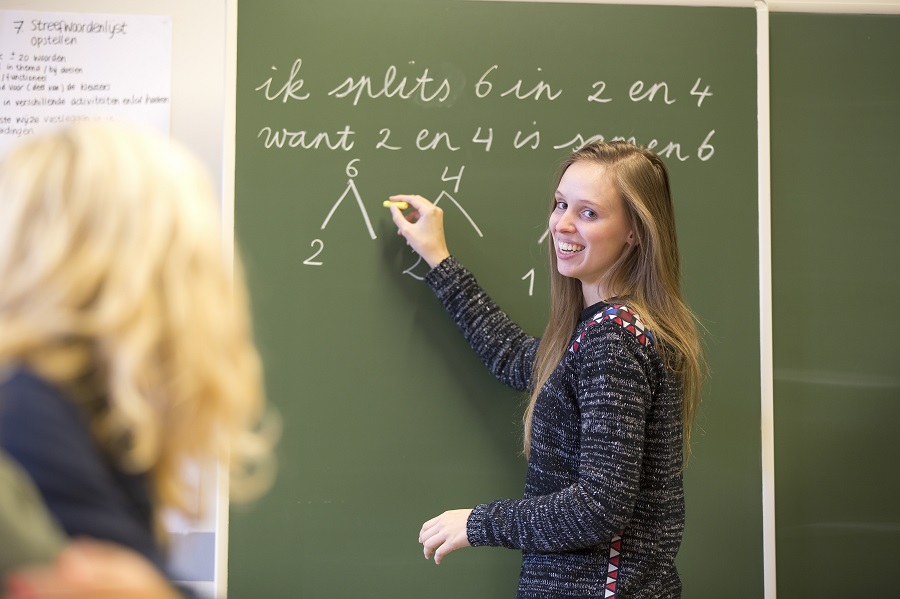 7. Streefwoordenlijst
opstellen
± 20 woorden
in thema / bij doelen
/ functioneel
voor (deel van) de kleuters
in verschillende activiteiten en/of hoeken
ik splits 6 in 2 en 4
want 2 en 4 is samen 6
6 4
2 2 1